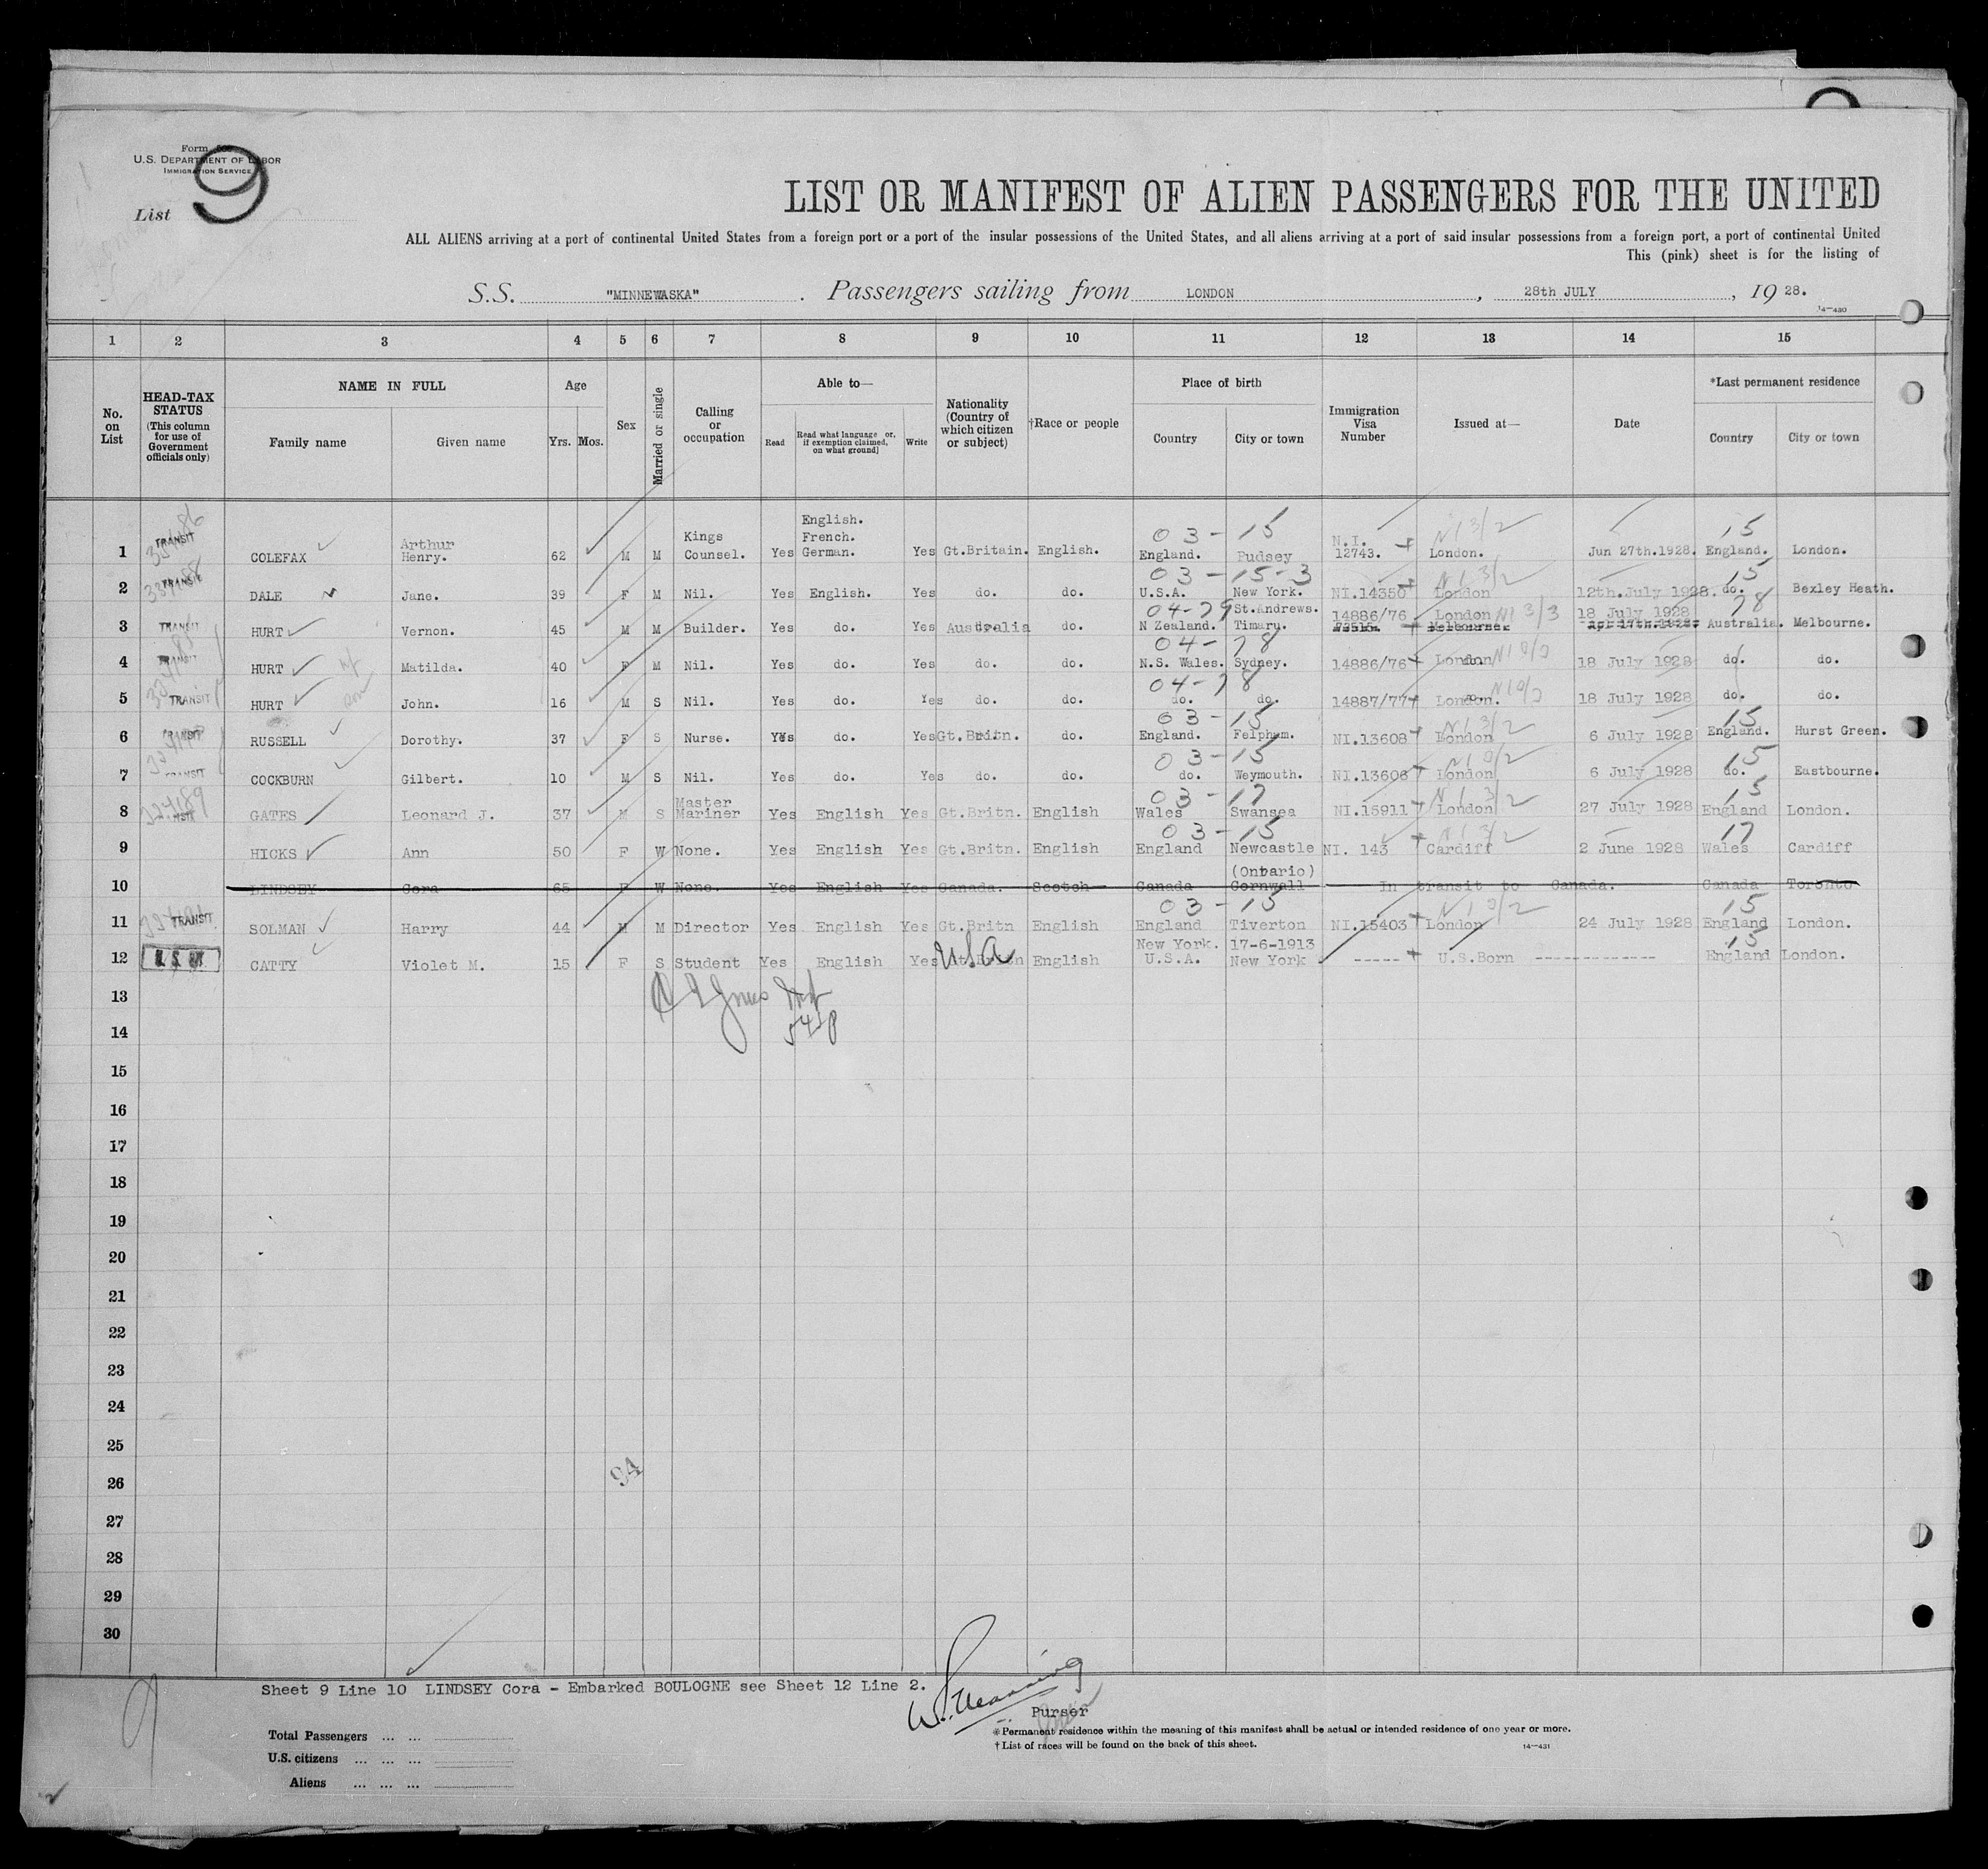 Form
U.S. DEPARTMENT OF LABOR
IMMIGRATION SERVICE
List 9
LIST OR MANIFEST OF ALIEN PASSENGERS FOR THE UNITED
ALL ALIENS arriving at a port of continental United States from a foreign port or a port of the insular possessions of the United States, and all aliens arriving at a port of said insular possessions from a foreign port, a port of continental United
This (pink) sheet is for the listing of
S.S. "MINNEWASKA" . Passengers sailing from LONDON , 28th JULY , 19 28.
14—430
1 2 3 4 5 6 7 8 9 10 11 12 13 14 15
No. on List
HEAD-TAX STATUS (This column for use of Government officials only)
NAME IN FULL Family name Given name
Age Yrs. Mos.
Sex
Married or single
Calling or occupation
Able to— Read Read what language or, if exemption claimed, on what ground] Write
Nationality (Country of which citizen or subject)
†Race or people
Place of birth Country City or town
Immigration Visa Number
Issued at—
Date
*Last permanent residence Country City or town
03-15 15
1 TRANSIT COLEFAX Arthur Henry. 62 M M Kings Counsel. Yes English. French. German. Yes Gt.Britain. English. England. Pudsey N.I. 12743. London. Jun 27th.1928. England. London.
03-15-3 15
2 TRANSIT DALE Jane. 39 F M Nil. Yes English. Yes do. do. U.S.A. New York. NI.14350 London 12th.July 1928. do. Bexley Heath.
04-79 St.Andrews. 14886/76 London 18 July 1928 78
3 TRANSIT HURT Vernon. 45 M M Builder. Yes do. Yes Australia do. N Zealand. Timaru. Melbourne. Apr 17th.1928. Australia. Melbourne.
04-78
4 TRANSIT HURT Matilda. 40 F M Nil. Yes do. Yes do. do. N.S. Wales. Sydney. 14886/76 London 18 July 1928 do. do.
04-78
5 TRANSIT HURT son John. 16 M S Nil. Yes do. Yes do. do. do. do. 14887/77 London. 18 July 1928 do. do.
03-15 15
6 TRANSIT RUSSELL Dorothy. 37 F S Nurse. Yes do. Yes Gt.Britn. do. England. Felpham. NI.13608 London 6 July 1928 England. Hurst Green.
03-15 15
7 TRANSIT COCKBURN Gilbert. 10 M S Nil. Yes do. Yes do. do. do. Weymouth. NI.13606 London 6 July 1928 do. Eastbourne.
03-17 15
8 GATES Leonard J. 37 M S Master Mariner Yes English Yes Gt.Britn. English Wales Swansea NI.15911 London 27 July 1928 England London.
03-15 17
9 HICKS Ann 50 F W None. Yes English Yes Gt.Britn. English England Newcastle NI. 143 Cardiff 2 June 1928 Wales Cardiff
10 LINDSEY Cora 65 F W None. Yes English Yes Canada. Scotch Canada (Ontario) Cornwall In transit to Canada. Canada Toronto
03-15 15
11 TRANSIT SOLMAN Harry 44 M M Director Yes English Yes Gt.Britn English England Tiverton NI.15403 London 24 July 1928 England London.
New York. 17-6-1913 15
12 CATTY Violet M. 15 F S Student Yes English Yes USA English U.S.A. New York ----- U.S.Born ------------- England London.
13
14
15
16
17
18
19
20
21
22
23
24
25
26
27
28
29
30
94
Sheet 9 Line 10 LINDSEY Cora - Embarked BOULOGNE see Sheet 12 Line 2.
Purser
9
Total Passengers ... ...
U.S. citizens ... ... ...
Aliens ... ... ...
*Permanent residence within the meaning of this manifest shall be actual or intended residence of one year or more.
†List of races will be found on the back of this sheet.
14—431